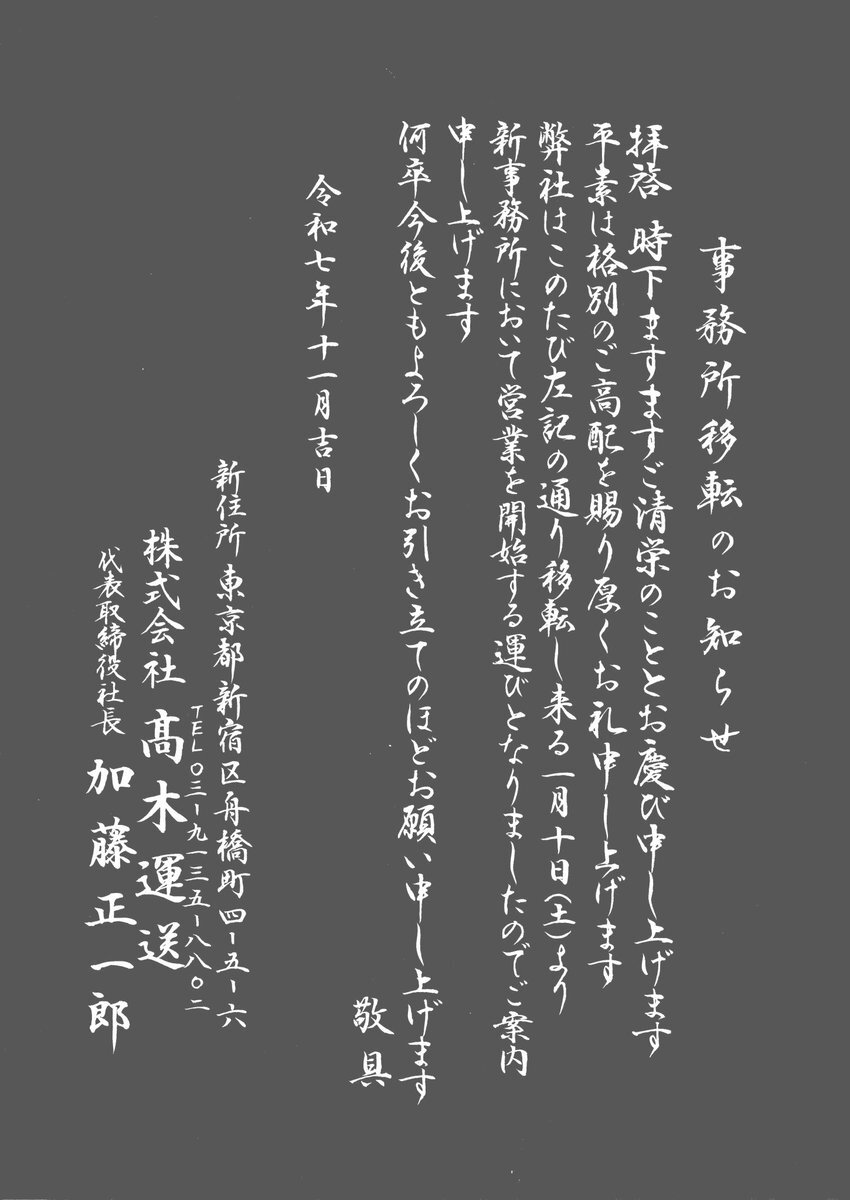 事務所移転のお知らせ
拝啓 時下ますますご清栄のこととお慶び申し上げます
平素は格別のご高配を賜り厚くお礼申し上げます
弊社はこのたび左記の通り移転し来る一月十日(土)より
新事務所において営業を開始する運びとなりましたのでご案内
申し上げます
何卒今後ともよろしくお引き立てのほどお願い申し上げます
敬具
令和七年十一月吉日
新住所 東京都新宿区舟橋町四-五-六
TEL〇三-九一三五-八八〇二
株式会社 髙木運送
代表取締役社長 加藤正一郎